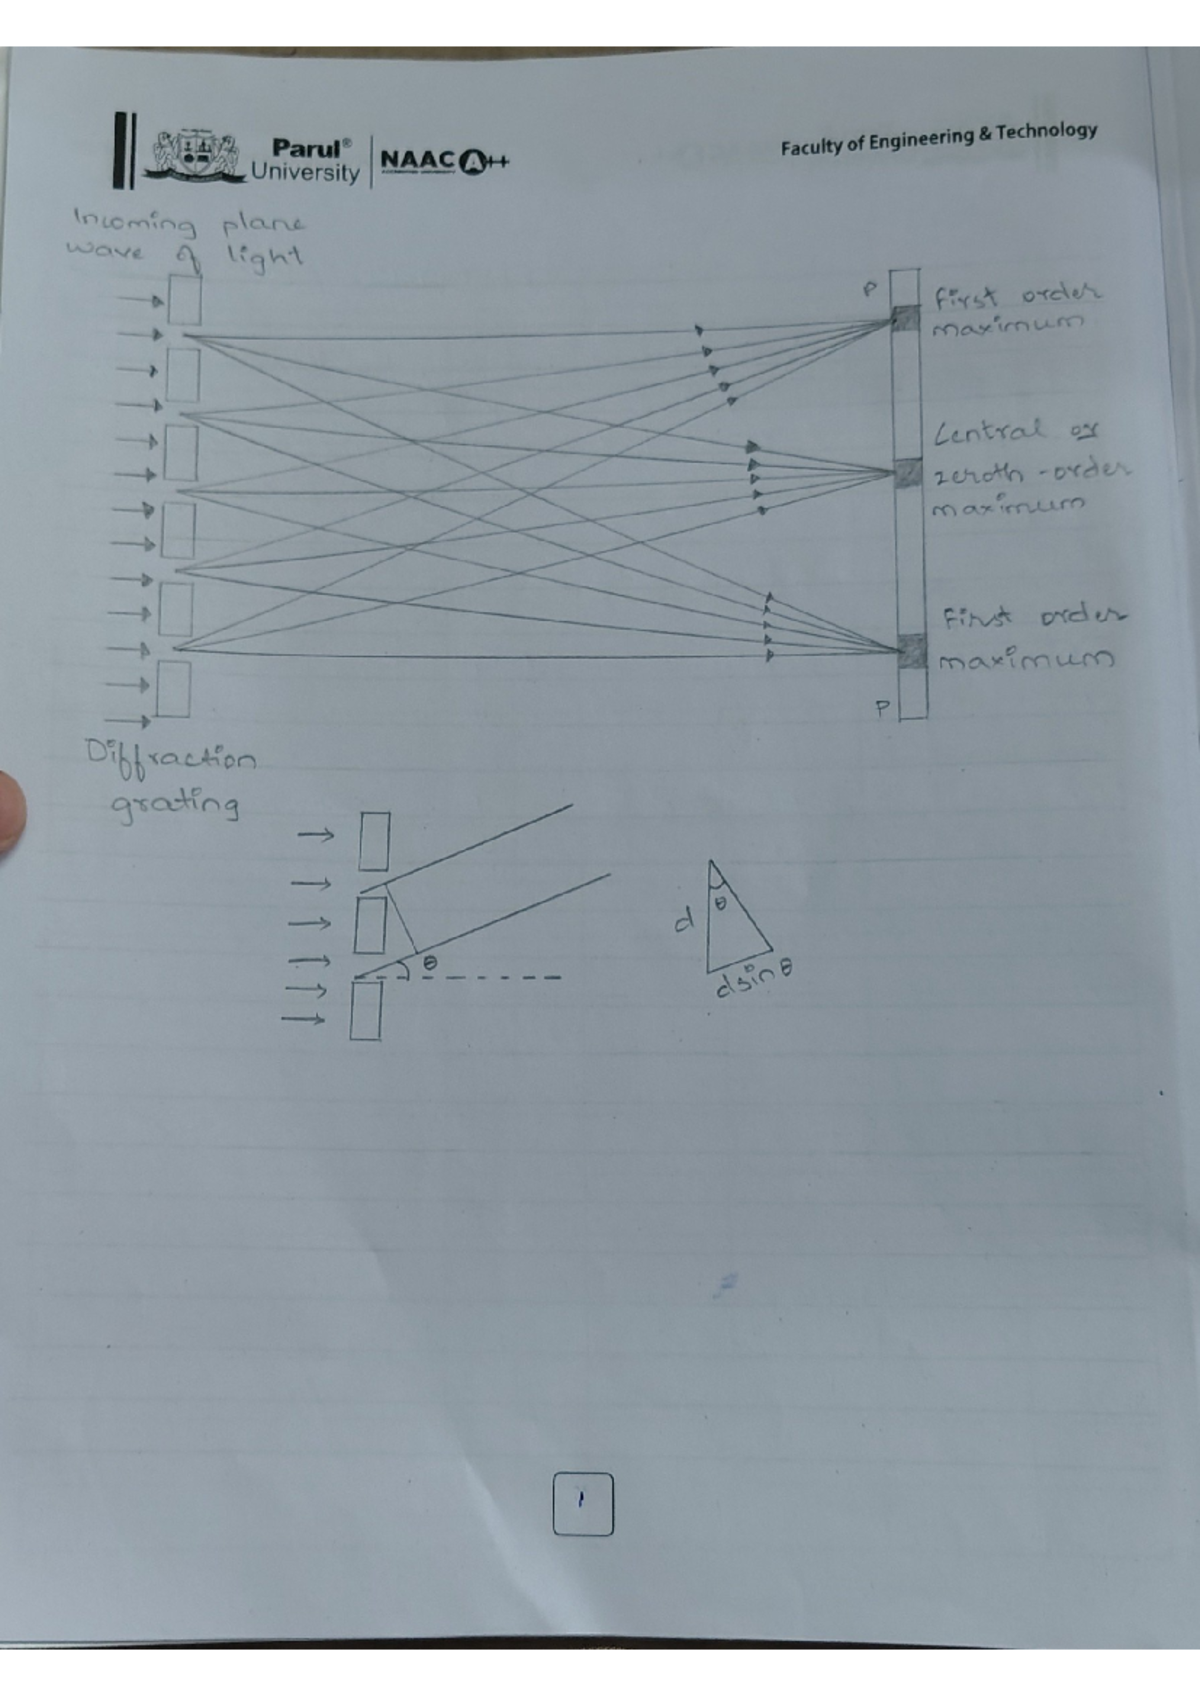 Parul®
University
NAAC A++
Faculty of Engineering & Technology
Incoming plane
wave of light
P
First order
maximum
Central or
zeroth-order
maximum
First order
maximum
P
Diffraction
grating
θ
d
θ
dsinθ
1